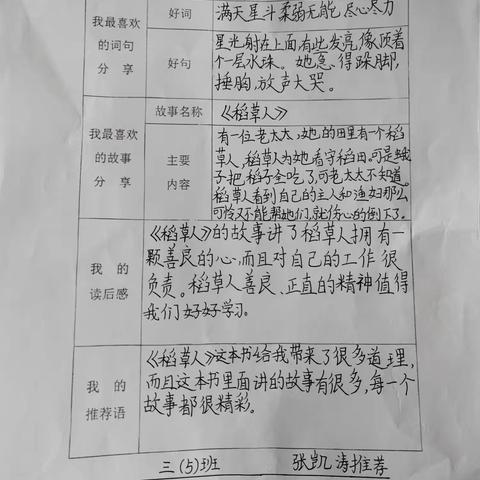 我最喜欢
的词句
分 享
好词
满天星斗柔弱无能,尽心尽力
好句
星光射在上面有些发亮,像顶着
一个层水珠。她急得跺脚,
捶胸,放声大哭。
我最喜欢
的故事
分 享
故事名称
《稻草人》
主要
内容
有一位老太太,她的田里有一个稻
草人,稻草人为她看守稻田。可是蛾
子把稻子全吃了,可老太太不知道。
稻草人看到自己的主人和渔妇那么
可怜又不能帮她们,就伤心的倒下了。
我 的
读后感
《稻草人》的故事讲了稻草人拥有一
颗善良的心,而且对自己的工作很
负责。稻草人善良、正直的精神值得
我们好好学习。
我 的
推荐语
《稻草人》这本书给我带来了很多道理,
而且这本书里面讲的故事有很多,每一个
故事都很精彩。
三(5)班 张凯涛推荐